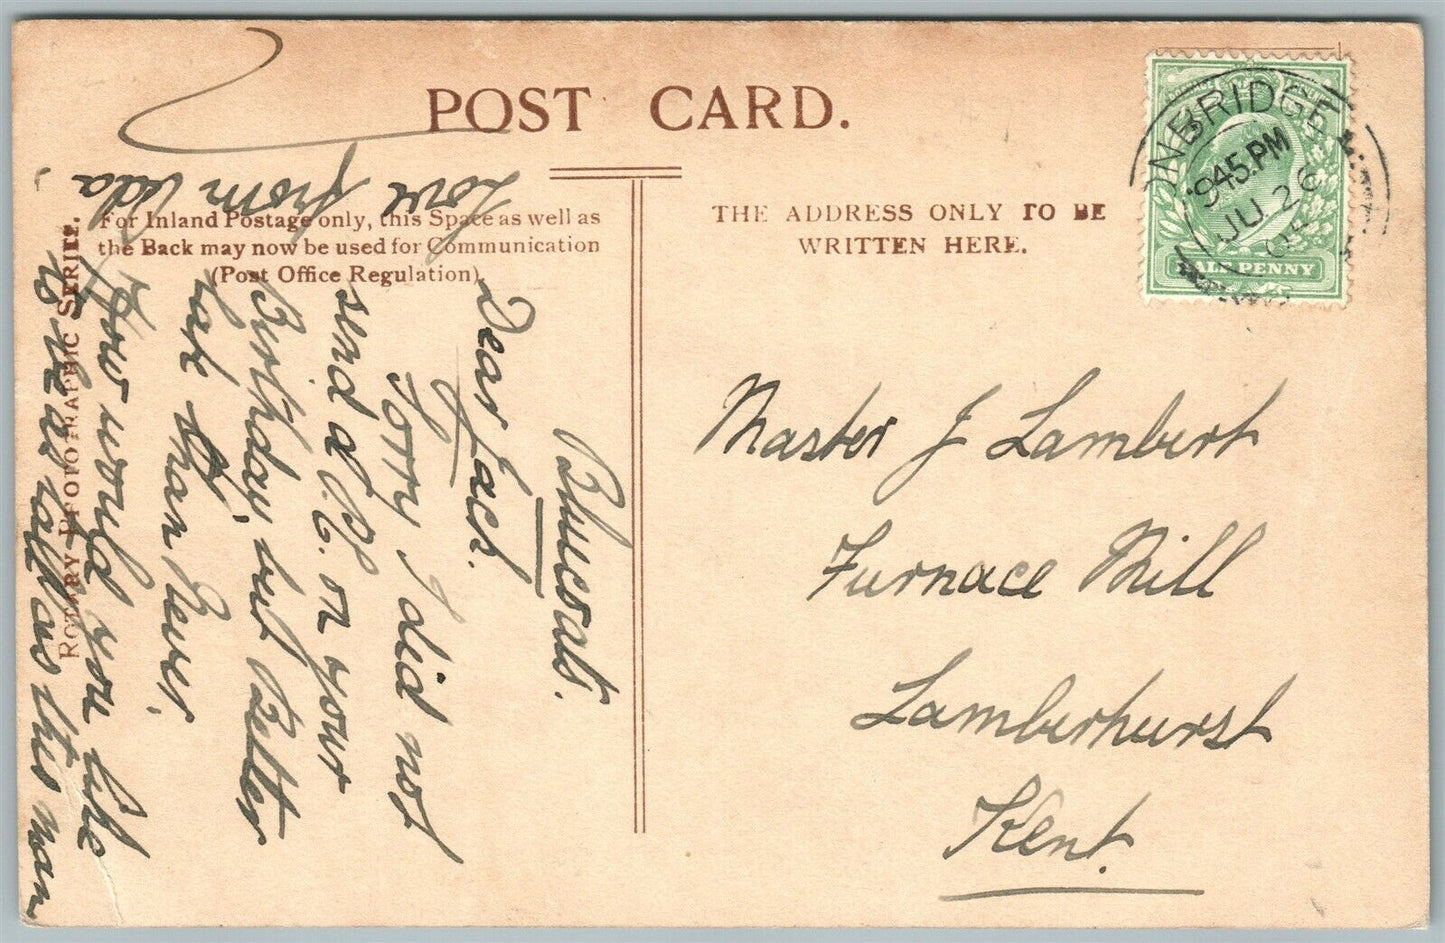 POST CARD.
For Inland Postage only, this Space as well as
the Back may now be used for Communication
(Post Office Regulation)
THE ADDRESS ONLY TO BE
WRITTEN HERE.
NBRIDGE
945.PM
JU 26
HALFPENNY
ROTARY PHOTOGRAPHIC SERIES.
Master J Lambert
Furnace Mill
Lamberhurst
Kent.
Bluecoats.
Dear Jack.
Sorry I did not
send a P.C. on your
Birthday, but Better
late than Never,
How would you like
to be as tall as this man
Love from